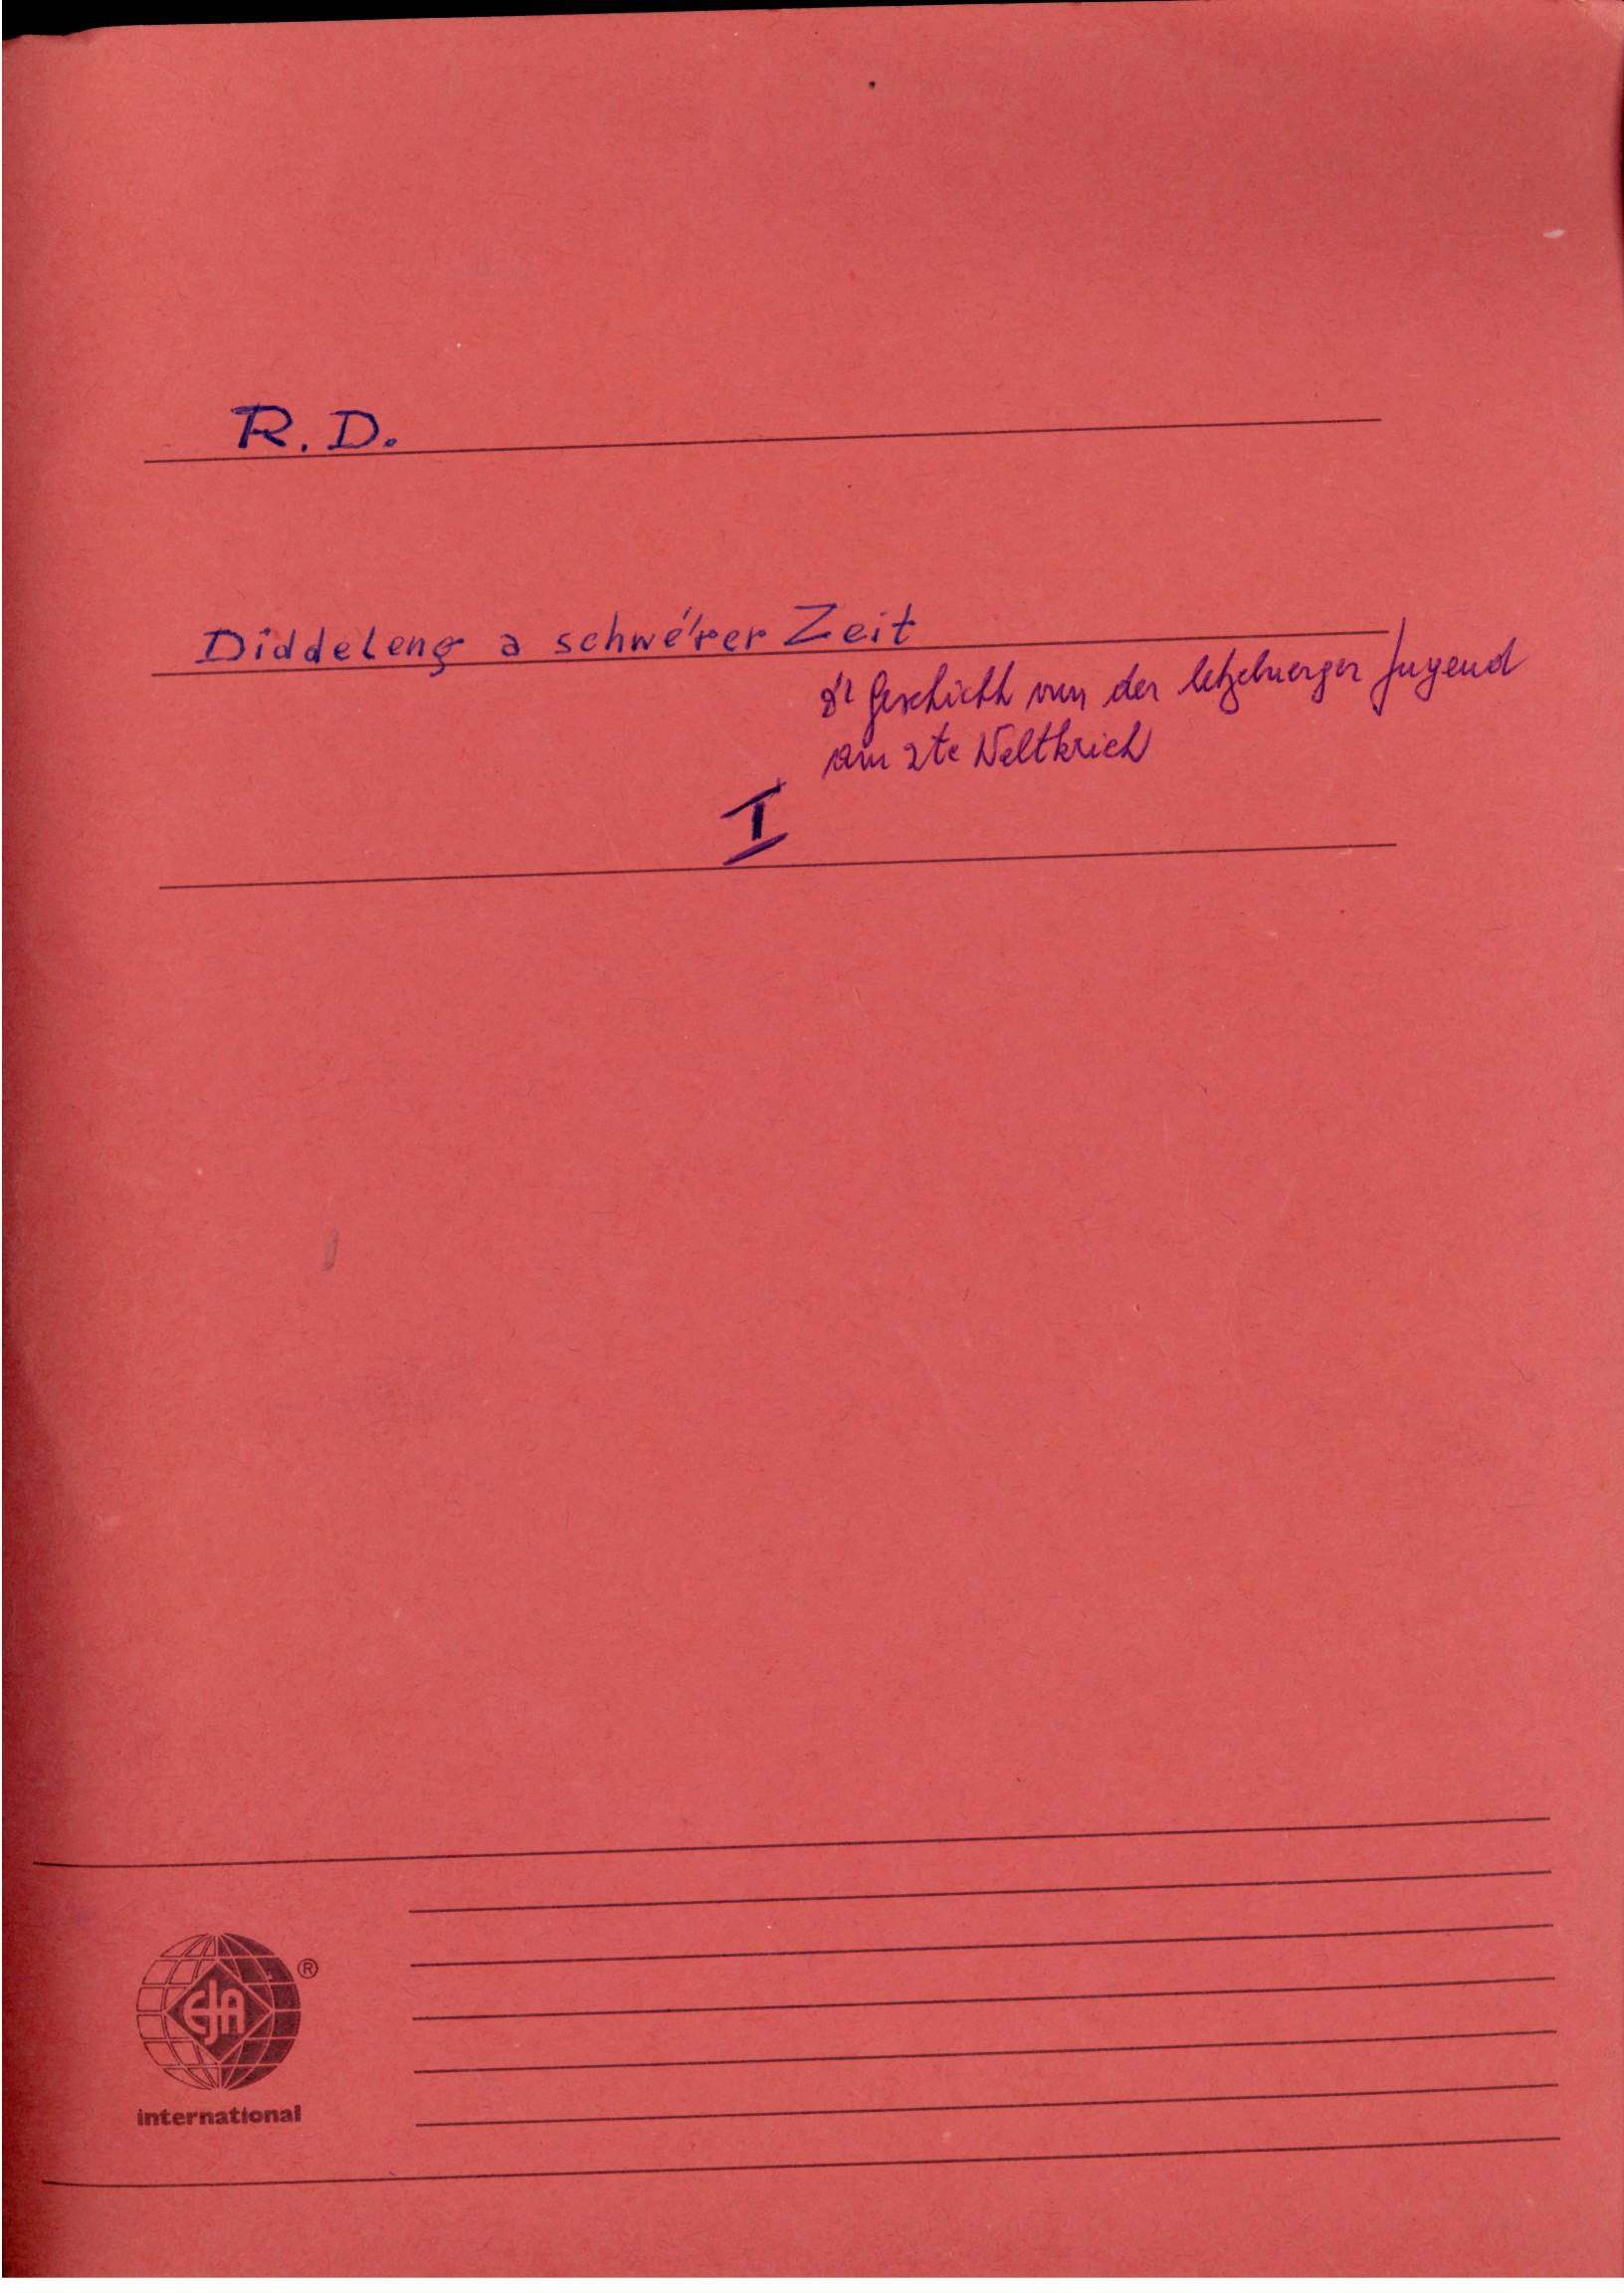 R. D.
Diddeleng a schwérer Zeit
d'Geschicht vun der letzebuerger Jugend
am 2te Weltkrich
I
EJA
®
international